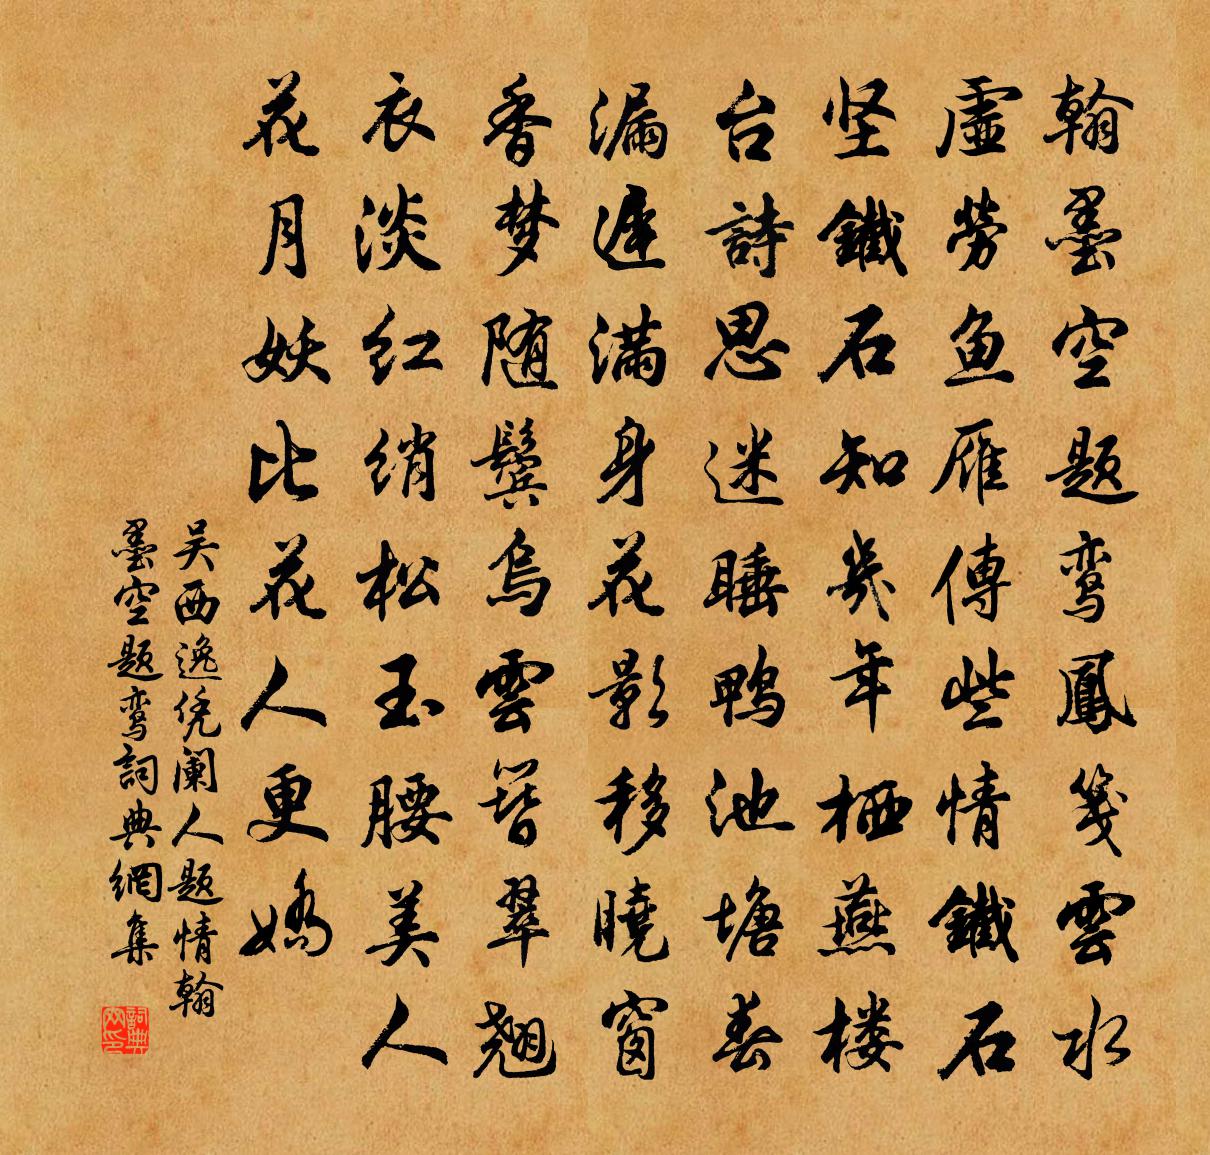 翰墨空题鸾鳳笺雲水
虚劳鱼雁傳些情鐵石
坚鐵石知幾年栖燕楼
台詩思迷睡鸭池塘春
漏遲满身花影移曉窗
香梦随鬓乌雲簪翠翘
衣淡红绡松玉腰美人
花月妖比花人更娇
吴西逸凭阑人题情翰
墨空题鸾詞典網集
詞典
网印